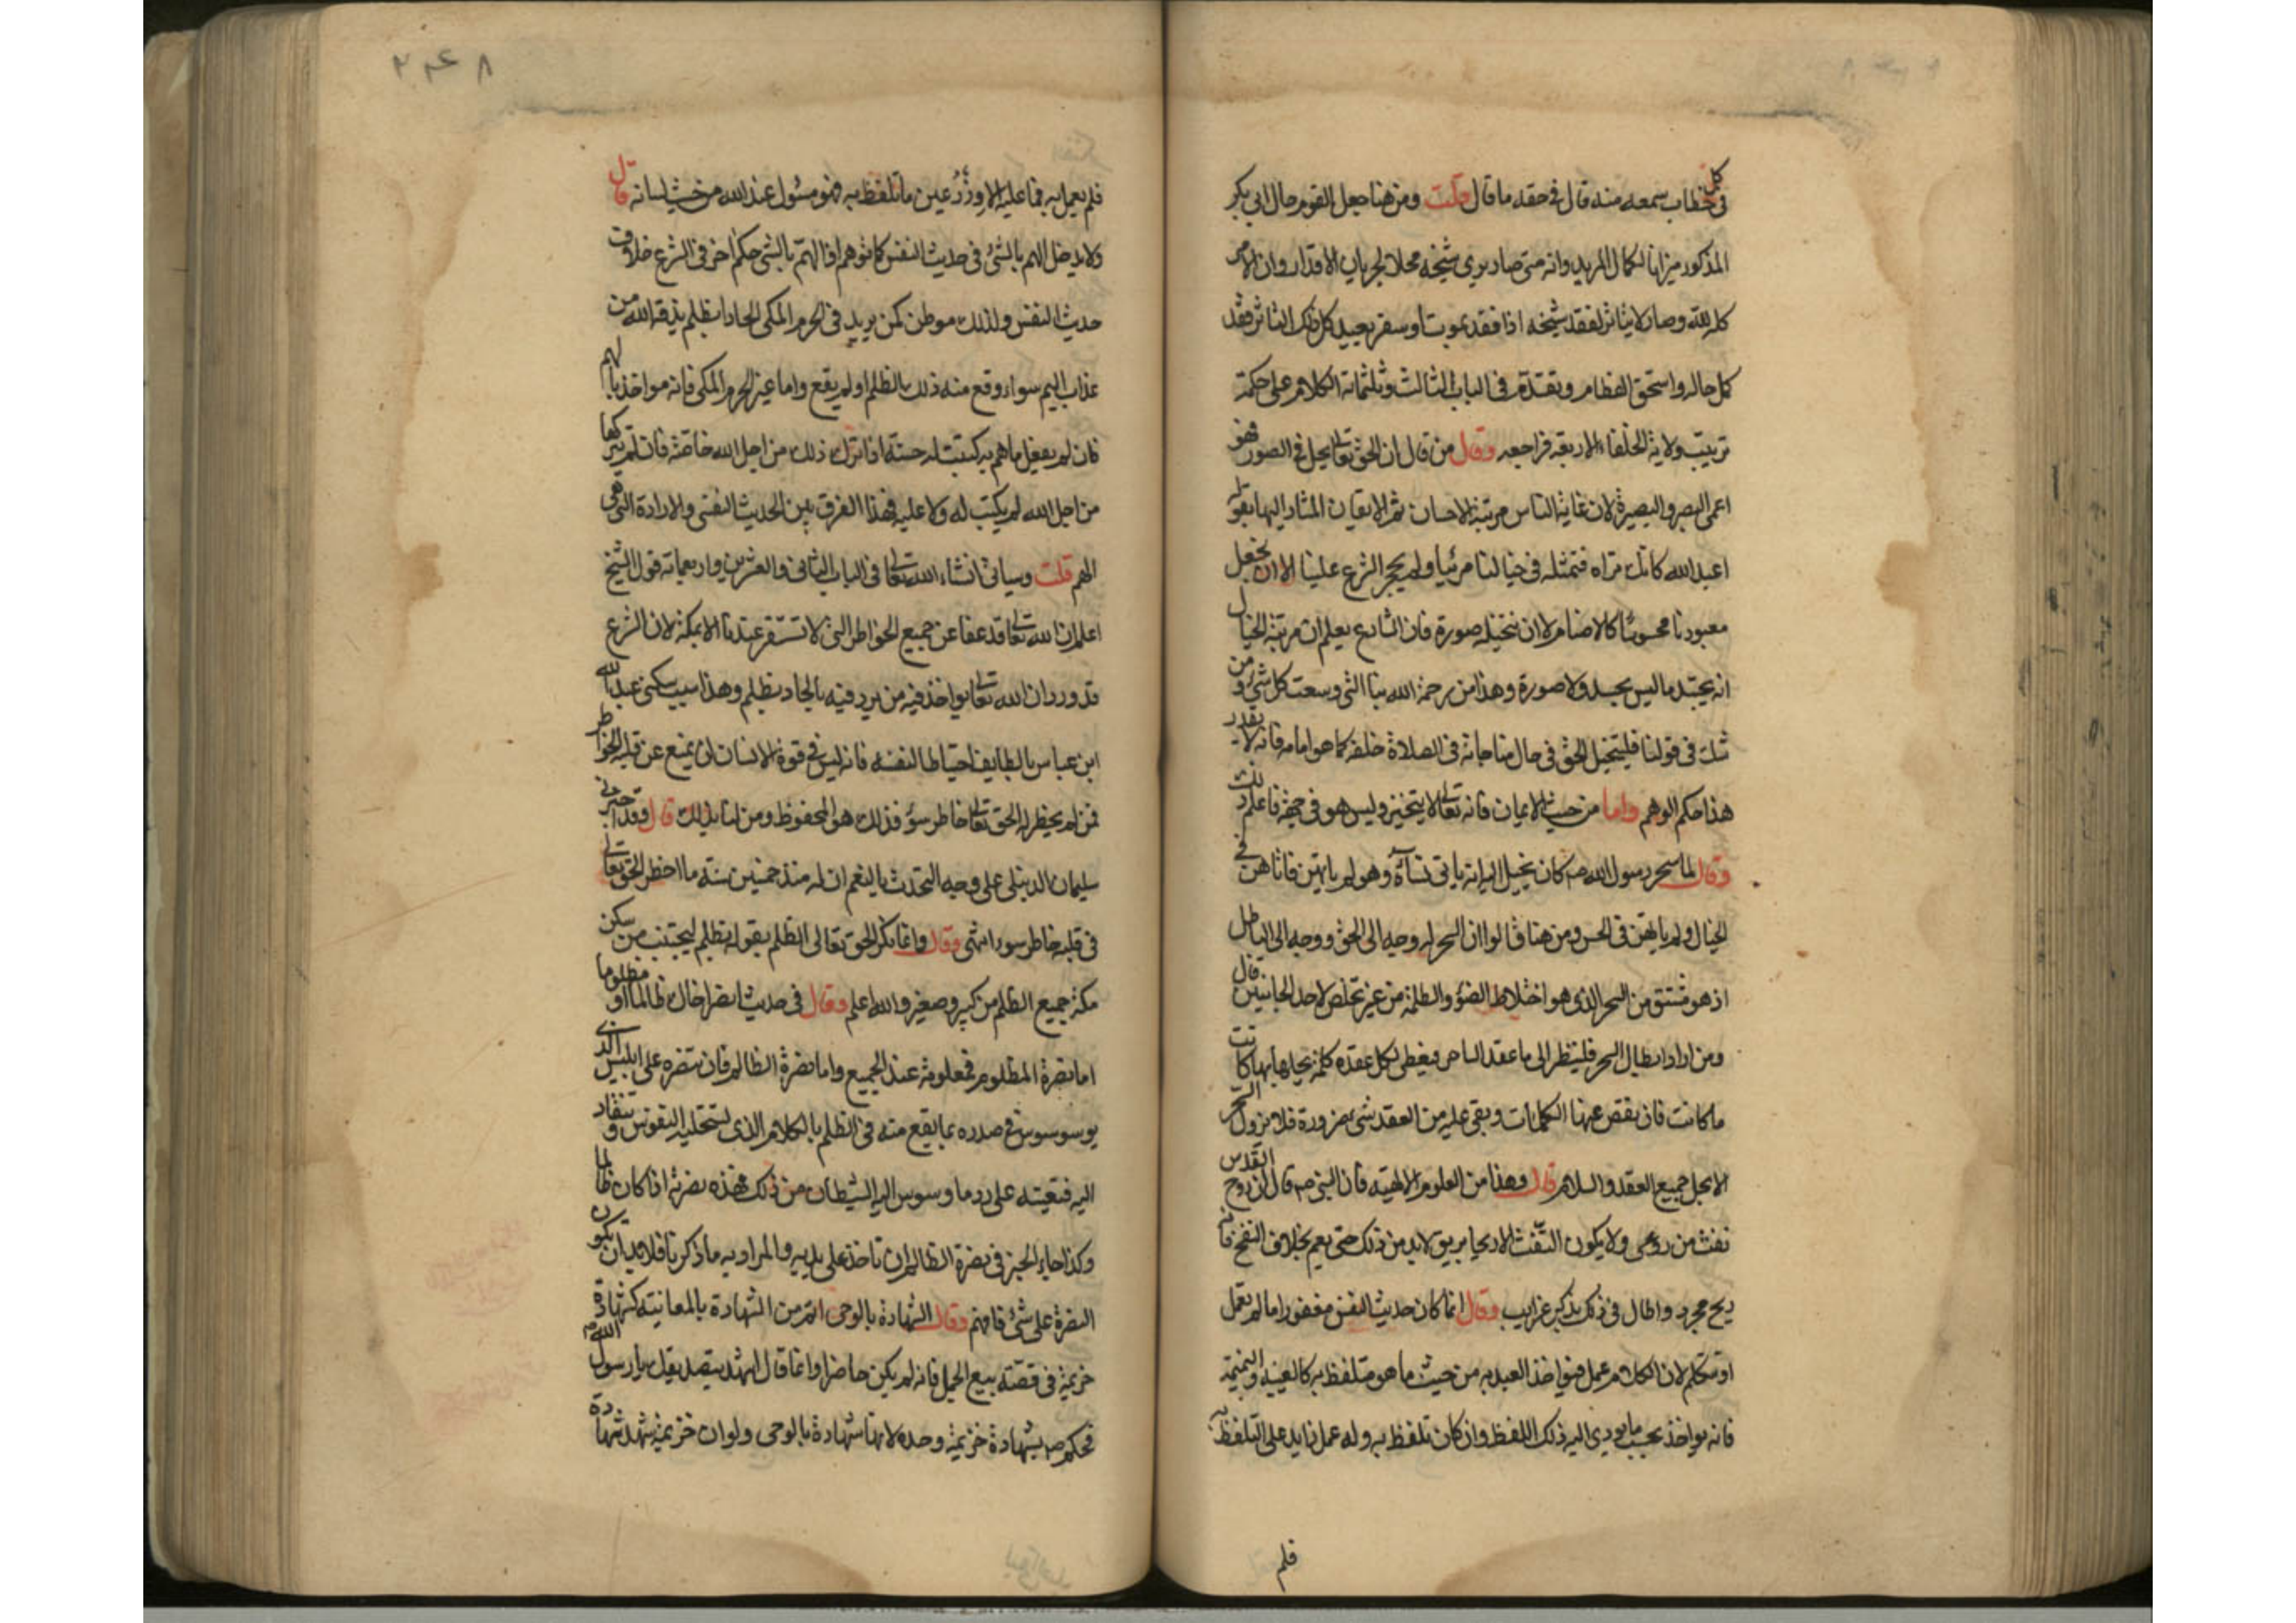 في كل خطاب سمعه منه قال في حقه ما قال قلت ومن هنا جعل القوم حال ابي بكر
المذكور ميزانا لكمال المريد وانه متى صار يرى شيخه محلا لجريان الاقدار وان الامر
كله لله وصار لا يتاثر لفقد شيخه اذا فقد بموت او سفر بعيد كل ذلك التاثر فقد
كمل حاله واستحق الفطام وتقدم في الباب الثالث وثلثمائة الكلام على حكمة
ترتيب ولاية الخلفاء الاربعة فراجعه وقال من قال ان الحق تعالى يحل في الصور فهو
اعمى البصر والبصيرة لان غاية الناس مرتبة الاحسان ثم الايقان المشار اليها بقوله
اعبد الله كانك تراه فتمثله في خيالنا مرئيا ولم يحجر الشرع علينا الا ان نجعل
معبودنا محسوسا كالاصنام لا ان نتخيله صورة فان الشارع يعلم ان مرتبة الخيال
انه يجسد ما ليس بجسد ولا صورة وهذا من رحمة الله بنا التي وسعت كل شئ ومن
شك في قولنا فليتخيل الحق في حال مناجاته في الصلاة خلفه كما هو امامه فانه لا يقدر
هذا حكم الوهم واما من حيث الايمان فانه تعالى لا يتحيز وليس هو في جهة فاعلم ذلك
وقال لما سحر رسول الله صم كان يخيل اليه انه ياتي نساءه وهو لم ياتهن فاتاهن في
الخيال ولم ياتهن في الحس ومن هنا قالوا ان السحر له وجه الى الحق ووجه الى الباطل
اذ هو مشتق من السحر الذي هو اختلاط الضوء والظلمة من غير تخلص لاحد الجانبين قال
ومن اراد ابطال السحر فلينظر الى ما عقد الساحر فيعطى لكل عقدة كلمة يحلها بها كانت
ما كانت فان نقص عنها الكلمات وبقى عليه من العقد شى ضرورة فلا يزول السحر
الا بحل جميع العقد والسلام قال وهذا من العلوم الالهية فان النبي صم قال ان روح القدس
نفث من روعى ولا يكون النفث الا ريحا بريق لابد من ذلك حتى يعم بخلاف النفخ فانه
ريح مجرد واطال في ذلك بذكر غرايب وقال انما كان حديث النفس مغفورا ما لم يعمل
او يتكلم لان الكلام عمل فيؤاخذ العبد به من حيث ما هو متلفظ به كالغيبة والنميمة
فانه يواخذ بحسب ما يودي اليه ذلك اللفظ وان كان تلفظ به وله عمل زايد على التلفظ به
فلم
٢٤٨
فلم يعمل به فما عليه الا وزر عين ما تلفظ به فهو مسئول عند الله من حيث لسانه قال
ولا يدخل الهم بالشئ في حديث النفس كما توهم اذ الهم بالشى حكم اخر في الشرع خلاف
حديث النفس ولذلك موطن كمن يريد في الحرم المكي الحادا بظلم يذقه الله من
عذاب اليم سواء وقع منه ذلك بالظلم او لم يقع واما غير الحرم المكي فانه مواخذ بالهم
فان لم يفعل ما هم به كتبت له حسنة اذا ترك ذلك من اجل الله خاصة فان لم يتركها
من اجل الله لم يكتب له ولا عليه فهذا الفرق بين الحديث النفسي والارادة التي هي
الهم قلت وسياتي انشاء الله تعالى في الباب الثاني والعشرين واربعماية قول الشيخ
اعلم ان الله تعالى قد عفا عن جميع الخواطر التي لا تستقر عندنا الا بمكة لان الشرع
قد ورد ان الله تعالى يواخذ فيه من يرد فيه بالحاد بظلم وهذا سبب سكنى عبد الله
ابن عباس بالطايف احتياطا لنفسه فانه ليس في قوة الانسان ان يمنع عن قلبه الخواطر
فمن لم يخطر له الحق تعالى خاطر سوء فذلك هو المحفوظ ومن لنا بذلك قال وقد اخبرني
سليمان الدنبلي على وجه التحدث بالنعم ان له منذ خمسين سنة ما اخطر الحق تعالى
في قلبه خاطر سوء انتهى وقال وانما نكر الحق تعالى الظلم بقوله بظلم ليجتنب من سكن
مكة جميع الظلم من كبير وصغير والله اعلم وقال في حديث انصر اخاك ظالما او مظلوما
اما نصرة المظلوم فمعلومة عند الجميع واما نصرة الظالم فان تنصره على ابليس الذي
يوسوس في صدره بما يقع منه في الظلم بالكلام الذي تستحليه النفوس وتنقاد
اليه فتعينه على رد ما وسوس اليه الشيطان من ذلك فهذه نصرته اذا كان ظالما
وكذا جاء الخبر في نصرة الظالم ان تاخذ على يديه والمراد به ما ذكرنا فلا بد ان تكون
النصرة على شئ فافهم وقال الشهادة بالوحى اتم من الشهادة بالمعاينة كشهادة
خزيمة في قصة بيع الجمل فانه لم يكن حاضرا وانما قال اشهد بتصديقك يا رسول الله
فحكم صم بشهادة خزيمة وحده لانها شهادة بالوحى ولو ان خزيمة شهد شهادة